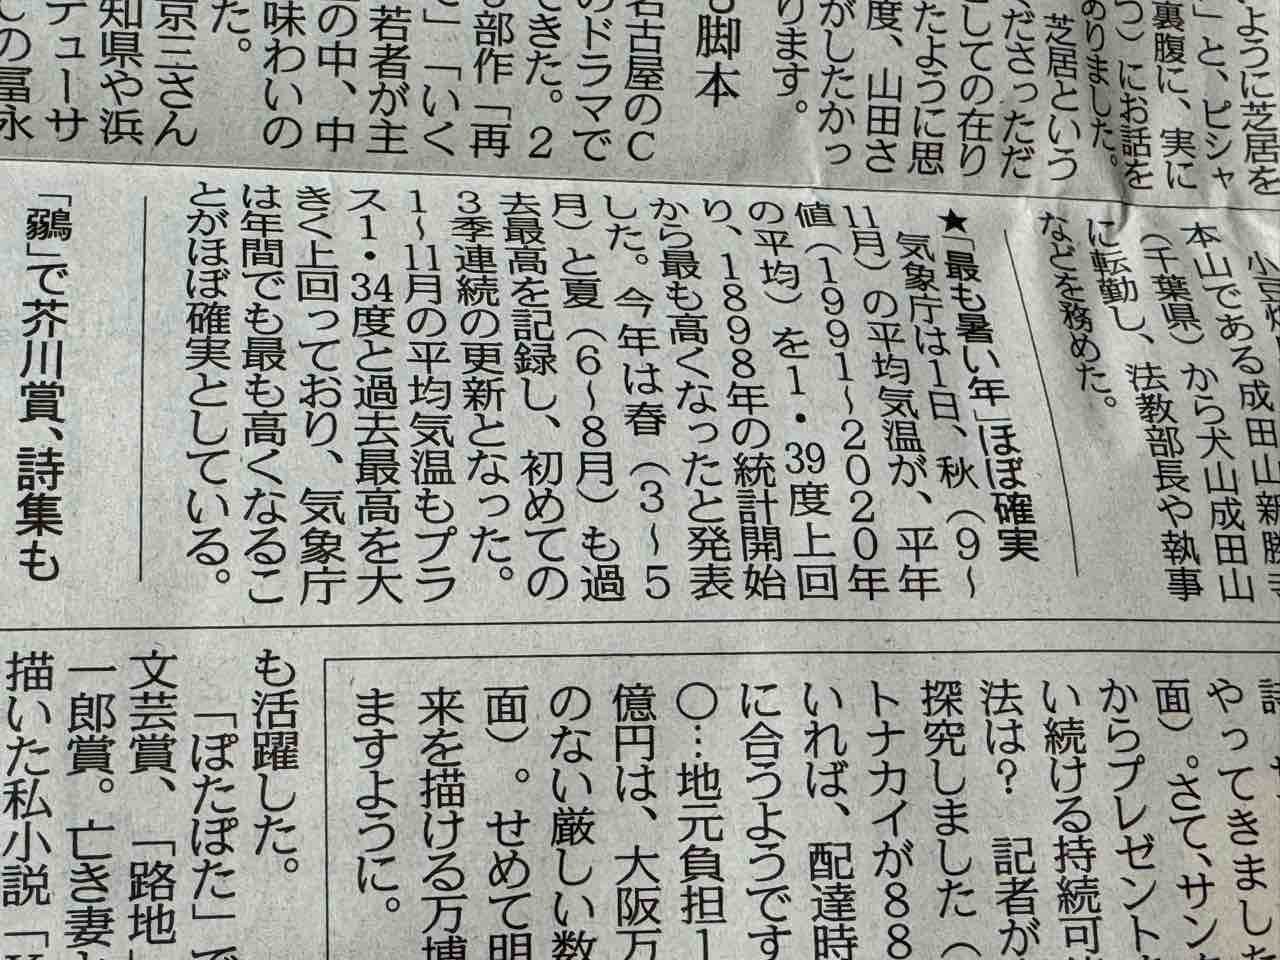 ように芝居を
」と、ピシャ
裏腹に、実に
つ）にお話を
ありました。
芝居という
くださっただ
としての在り
たように思
度、山田さ
がしたかっ
ります。
脚本
名古屋のC
のドラマで
できた。2
部作「再
」「いく
若者が主
の中、中
味わいの
た。
京三さん
知県や浜
デューサ
しの冨永
本山である成田山新勝寺
（千葉県）から犬山成田山
に転勤し、法教部長や執事
などを務めた。
★「最も暑い年」ほぼ確実
気象庁は1日、秋（9〜
11月）の平均気温が、平年
値（1991〜2020年
の平均）を1・39度上回
り、1898年の統計開始
から最も高くなったと発表
した。今年は春（3〜5
月）と夏（6〜8月）も過
去最高を記録し、初めての
3季連続の更新となった。
1〜11月の平均気温もプラ
ス1・34度と過去最高を大
きく上回っており、気象庁
は年間でも最も高くなるこ
とがほぼ確実としている。
「鶸」で芥川賞、詩集も
やってきました
面）。さて、サン
からプレゼント
い続ける持続可
法は？　記者が
探究しました（
トナカイが88
いれば、配達時
に合うようです
〇…地元負担1
億円は、大阪万
のない厳しい数
面）。せめて明
来を描ける万博
ますように。
も活躍した。
「ぽたぽた」で
文芸賞、「路地」
一郎賞。亡き妻
描いた私小説「